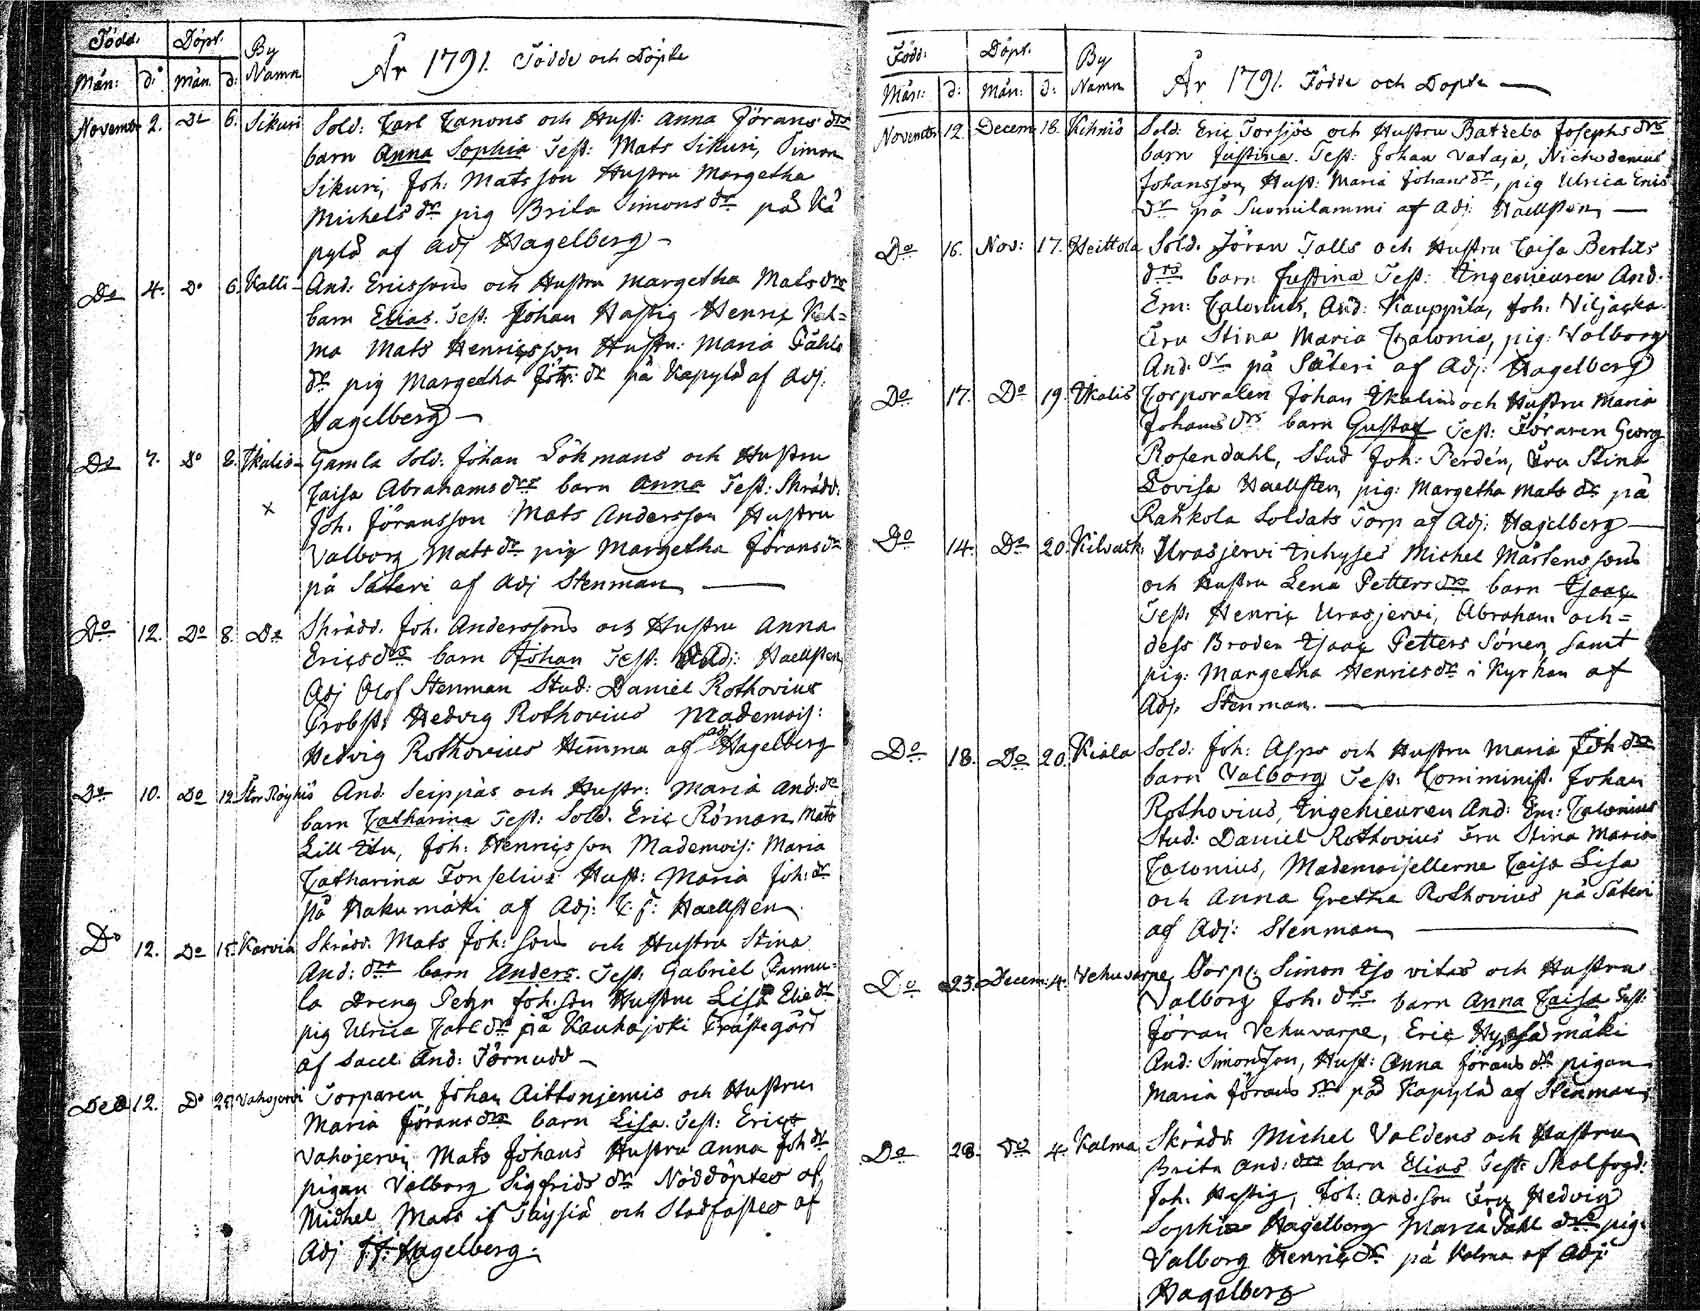 Född. Döpt. By
Mån: d: Mån. d: Namn
År 1791. Födde och Döpte
Novembr 2. Do 6. Sikuri Sold: Carl Canons och Hust: Anna Jörans drs
barn Anna Sophia Test: Mats Sikuri, Simon
Sikuri, Joh: Matsson Hustru Margetha
Michels dr pig Brita Simons dr på Kä
pylä af Adj Hagelberg
Do 4. Do 6. Kalli And: Ericssons och Hustru Margetha Mats drs
barn Elias. Test: Johan Hastig Henric Kal=
ma Mats Henricsson Hustru: Maria Påhls
dr pig Margetha Joh: dr på Kapylä af Adj.
Hagelberg
Do 7. Do 8. Ikalis Gamla Sold: Johan Lökmans och Hustru
x
Caisa Abrahams drs barn Anna Test: Skrädd:
Joh. Jöransson Mats Andersson Hustru
Valborg Mats dr pig Margetha Jörans dr
på Säteri af Adj Stenman
Do 12. Do 8. Do Skrädd. Joh. Anderssons och Hustru Anna
Erics drs barn Johan Test: Adj: Haellsten
Adj Olof Stenman Stud: Daniel Rothovius
Probst: Hedvig Rothovius Mademois:
Hedvig Rothovius Hemma af adj Hagelberg
Do 10. Do 12. Stor Röyhiö And. Seippäs och Hustr: Maria And: dr
barn Catharina Test: Sold. Eric Röman Mats
Lill Itu, Joh: Henricsson Mademois: Maria
Catharina Fonselius Hust: Maria Joh: dr
på Hakumäki af Adj: C: F: Haellsten
Do 12. Do 15. Karvia Skrädd. Mats Joh: Sons och Hustru Stina
And: drs barn Anders. Test: Gabriel Fannu=
la Dreng Petr Joh: son Hustru Lisa Elie dr
pig Ulrica Carl dr på Kauhajoki Prästegård
af Sacell And: Törnudd
Do 12. Do 25. Vahojervi Torparen Johan Aittonjemis och Hustru
Maria Jörans drs barn Lisa. Test: Erics
Vahojervi Mats Johans Hustru Anna Joh dr
pigan Valborg Sigfrids dr Nöddöptes af
Michel Mats if Täysiä och Stadfästes af
Adj J: J: Hagelberg.
Född: Döpt. By
Mån: d: Mån: d: Namn
År 1791. Födde och Döpte
Novembr 12. Decem 18. Kihniö Sold: Eric Torsjös och Hustru Batzeba Josephs drs
barn Justina. Test: Johan Vataja, Nichodemus
Johansson, Hust: Maria Johans dr, pig Ulrica Erics
dr på Suomilammi af Adj. Haellsten
Do 16. Nov: 17. Heittola Sold. Jöran Talls och Hustru Caisa Bertils
drs barn Justina Test: Ingenieuren And.
Em: Calonius, And: Kauppila, Joh: Viljaska
Fru Stina Maria Calonia, pig: Valborg
And: dr på Säteri af Adj: Hagelberg
Do 17. Do 19. Ikalis Corporalen Johan Ikalins och Hustru Maria
Johans drs barn Gustaf Test: Föraren Georg
Rosendahl, Stud Joh: Perdén, Fru Stina
Lovisa Haellsten, pig: Margetha Mats dr på
Rahkola Soldats Torp af Adj: Hagelberg
Do 14. Do 20. Kilvack: Urasjervi Inhyses Michel Mårtenssons
och Hustru Lena Petters drs barn Isaac
Test: Henric Urasjervi, Abraham och=
dess Broder Isaac Petters Söner, samt
pig: Margetha Henrics dr i Kyrkan af
Adj. Stenman.
Do 18. Do 20. Kiala Sold: Joh: Aspo och Hustru Maria Joh drs
barn Valborg Test: Comminist. Johan
Rothovius, Ingenieuren And: Em: Calonius
Stud: Daniel Rothovius Fru Stina Maria
Calonius, Mademoisellerne Caisa Lisa
och Anna Gretha Rothovius på Säteri
af Adj: Stenman
Do 23. Decem: 4. Vehuvarpe Torp: Simon Isovitas och Hustru
Valborg Joh. drs barn Anna Caisa Test:
Jöran Vehuvarpe, Eric Hypsämäki
And: Simonsson, Hust: Anna Jörans dr pigan
Maria Jörans dr på Kapylä af Stenman
Do 28. Do 4. Kalma Skrädd: Michel Valdens och Hustru
Brita And: drs barn Elias Test: Skalfogd:
Joh. Hastig, Joh: And.son Fru Hedvig
Sophia Hagelberg Maria Påhl drs pig:
Valborg Henric dr på Kalma af Adj
Hagelberg